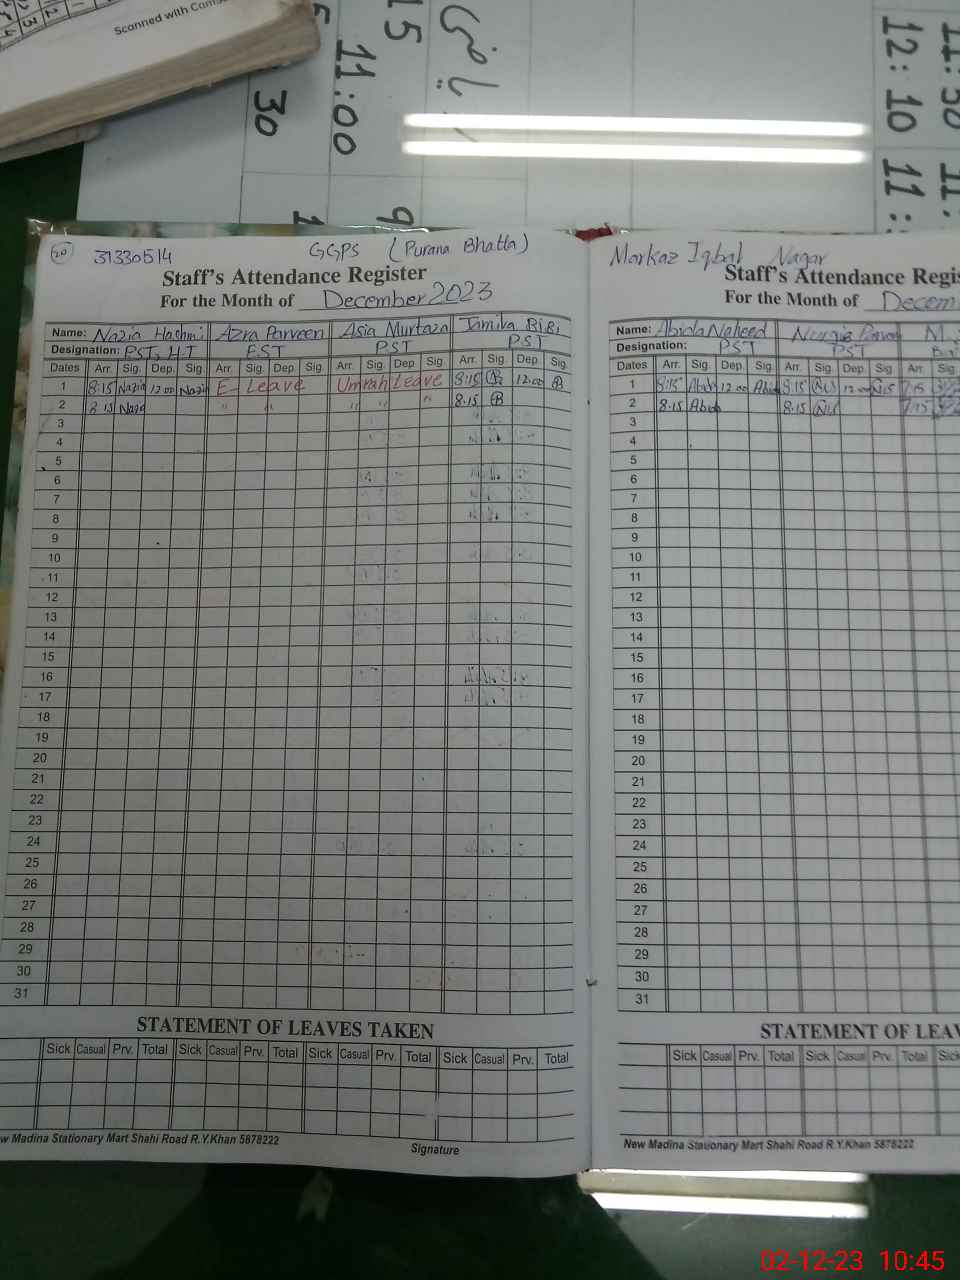 Scanned with Cam
15
11:00
30
9
11:50
12:10
11:
20
31330514
GGPS (Purana Bhatta)
Staff's Attendance Register
For the Month of December 2023
Name: Nazia Hashmi Azra Parveen Asia Murtaza Jamila Bibi
Designation: PST, H.T EST PST PST
Dates Arr. Sig. Dep. Sig. Arr. Sig. Dep. Sig. Arr. Sig. Dep. Sig. Arr. Sig. Dep. Sig.
1 8:15 Nazia 12:00 Nazia E-Leave Umrah Leave 8:15 12:00
2 8:15 Nazia " " " " " 8:15
3
4
5
6
7
8
9
10
11
12
13
14
15
16
17
18
19
20
21
22
23
24
25
26
27
28
29
30
31
STATEMENT OF LEAVES TAKEN
Sick Casual Prv. Total Sick Casual Prv. Total Sick Casual Prv. Total Sick Casual Prv. Total
w Madina Stationary Mart Shahi Road R.Y.Khan 5878222
Signature
Markaz Iqbal Nagar
Staff's Attendance Regis
For the Month of Decem
Name: Abida Naheed Nargis Parveen M.
Designation: PST PST
Dates Arr. Sig. Dep. Sig. Arr. Sig. Dep. Sig Arr. Sig.
1 8:15 Abida 12:00 Abida 8:15 12:00 7:15
2 8:15 Abida 8:15 7:15
3
4
5
6
7
8
9
10
11
12
13
14
15
16
17
18
19
20
21
22
23
24
25
26
27
28
29
30
31
STATEMENT OF LEAV
Sick Casual Prv. Total Sick Casual Prv. Total Sick
New Madina Stationary Mart Shahi Road R.Y.Khan 5878222
02-12-23 10:45